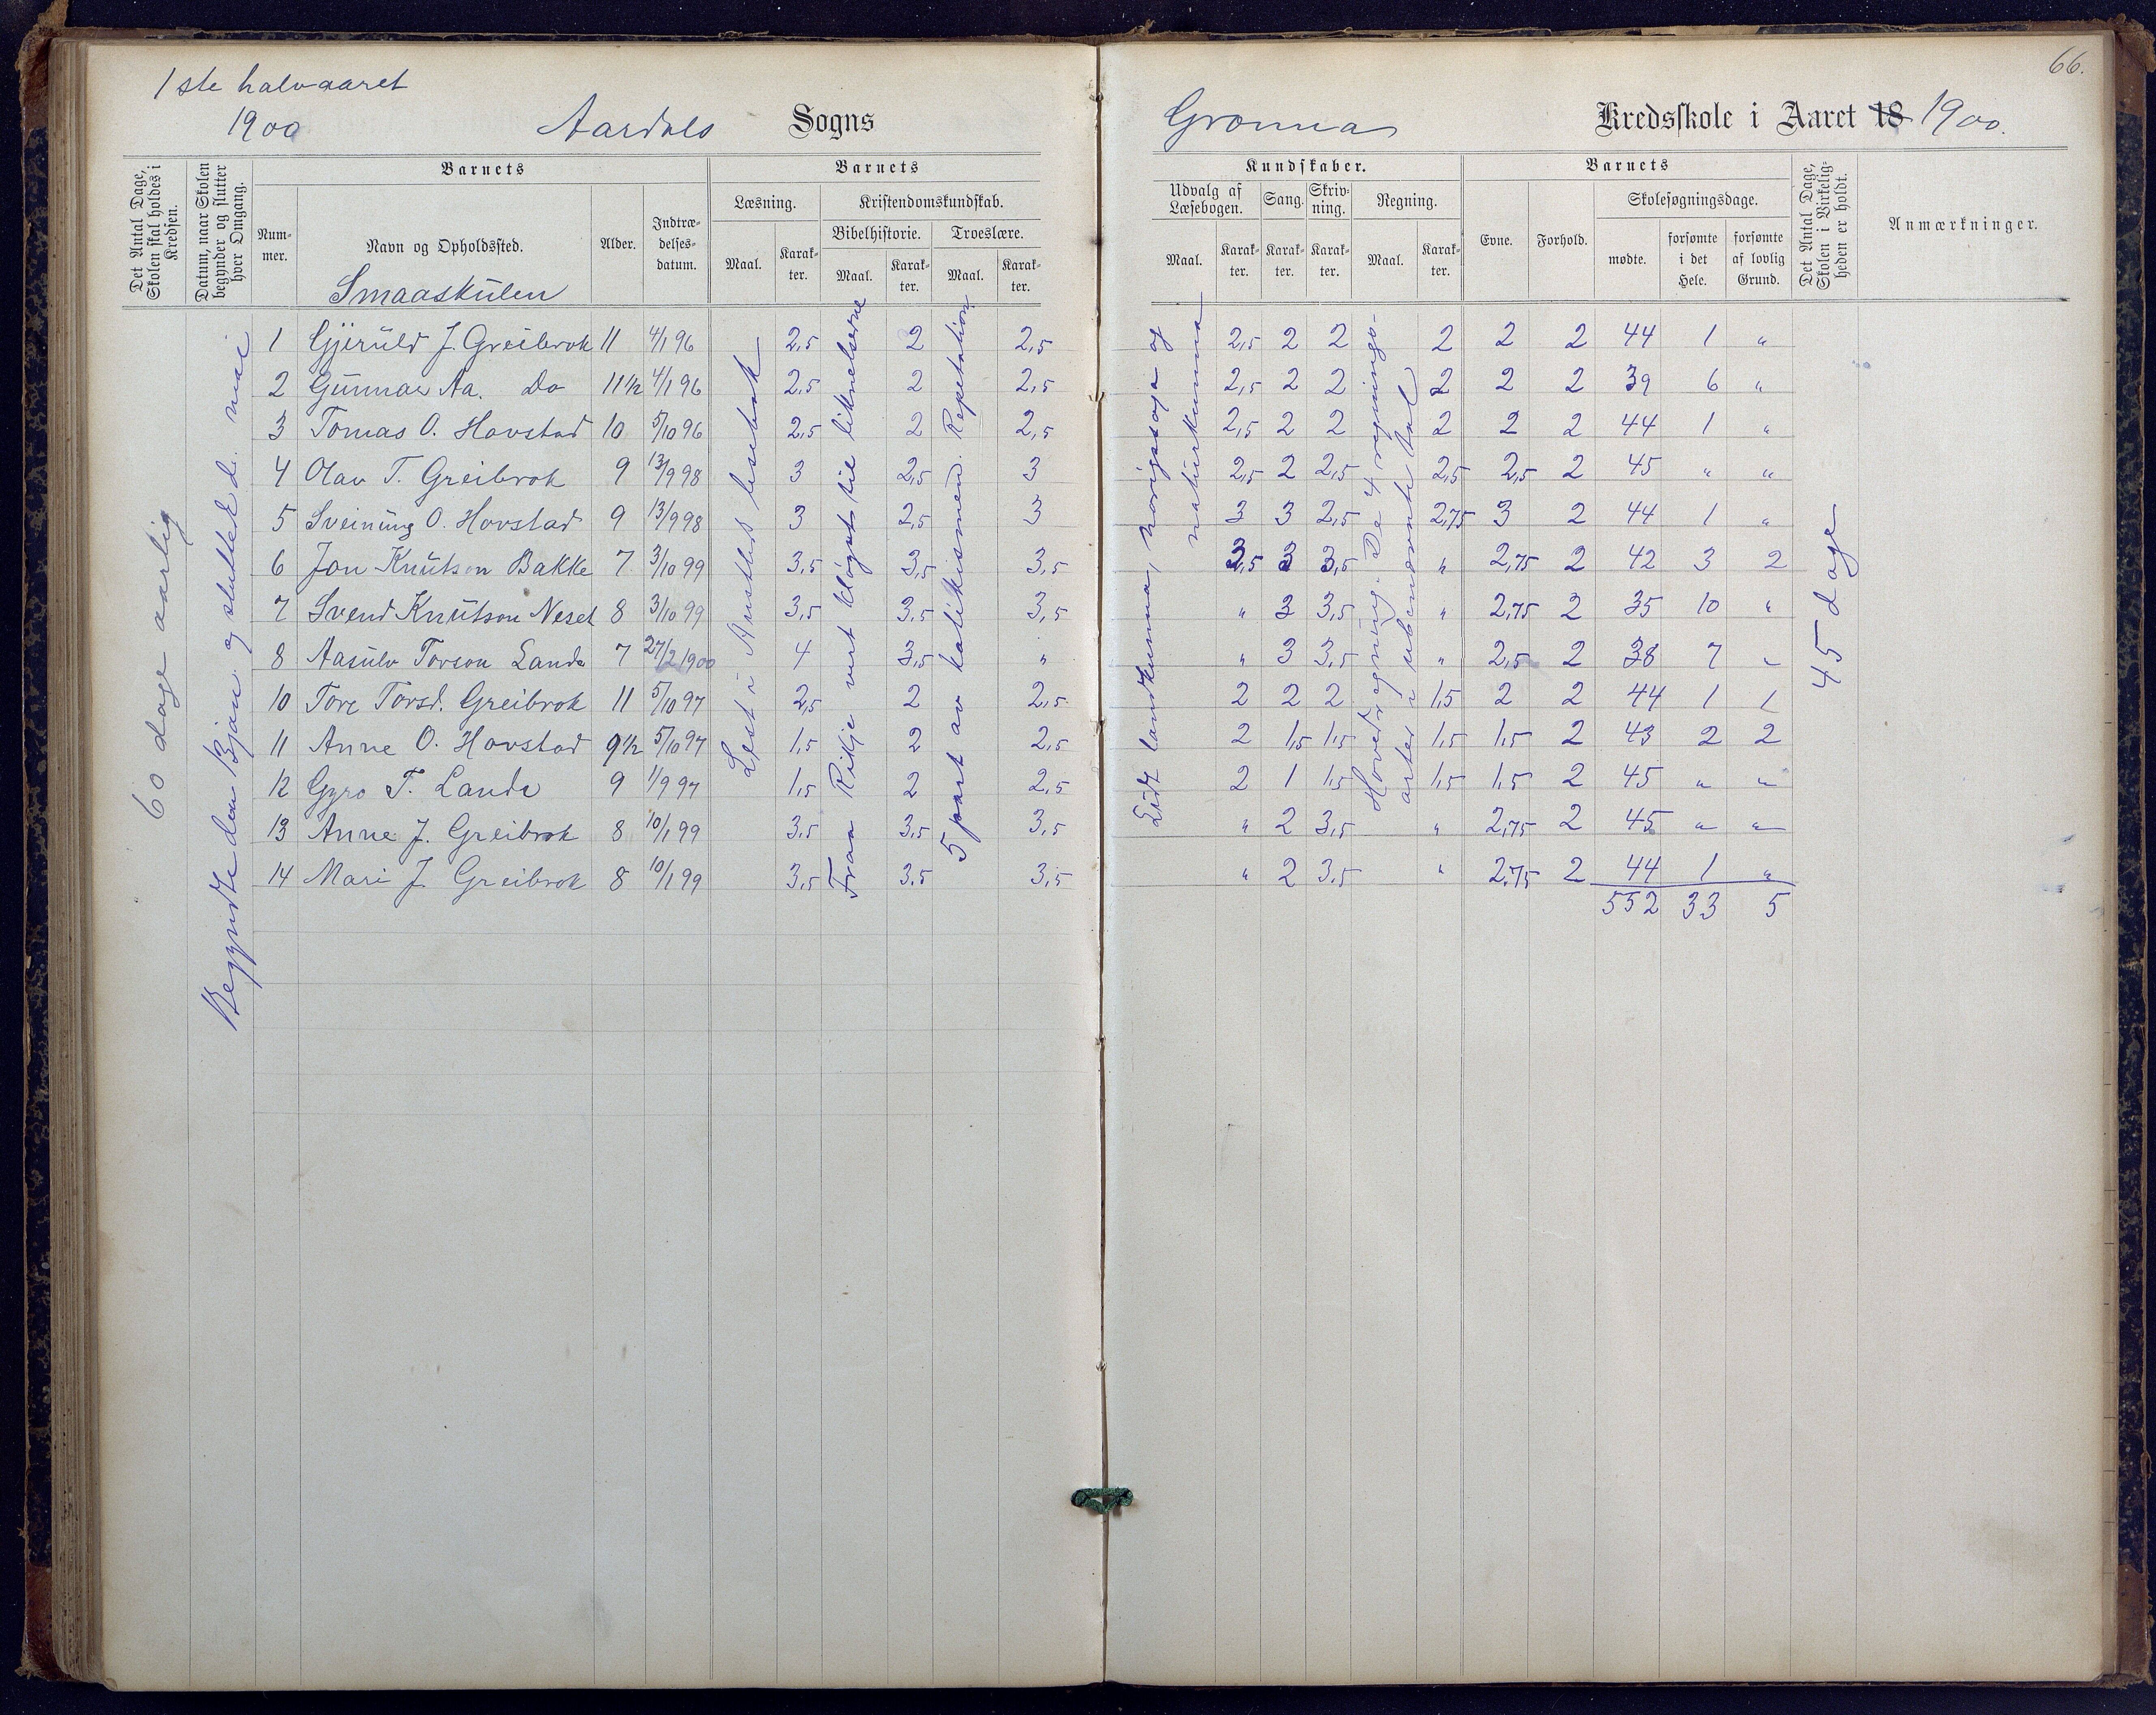 66.
1ste halvaaret
1900 Aardals Sogns
Kredsskole i Aaret 18 1900.
Det Antal Dage, Skolen skal holdes i Kredsen.
Datum, naar Skolen begynder og slutter hver Omgang.
Barnets
Nummer.
Navn og Opholdssted.
Smaaskulen
Alder.
Indtrædelsesdatum.
Barnets
Læsning.
Maal.
Karakter.
Kristendomskundskab.
Bibelhistorie.
Maal.
Karakter.
Troeslære.
Maal.
Karakter.
Kundskaber.
Udvalg af Læsebogen.
Maal.
Karakter.
Sang.
Karakter.
Skrivning.
Karakter.
Regning.
Maal.
Karakter.
Barnets
Evne.
Forhold.
Skolesøgningsdage.
mødte.
forsømte i det Hele.
forsømte af lovlig Grund.
Det Antal Dage, Skolen i Virkeligheden er holdt.
Anmærkninger.
60 dage aarlig
Begyndte den og sluttede d. mai
Lest i lesebok
Fraa Rikje vert til liknelserne
5 part av katekismen. Repetation
Lidt landkunna, norigssoga og naturkunna
Hovedregning. De 4 regningsarter i ubenævnte tal
45 dage
1 Gjeruld J. Greibrok 11 4/1 96 2,5 2 2,5 2,5 2 2 2 2 2 44 1 "
2 Gunnar Aa. Do 11½ 4/1 96 2,5 2 2,5 2,5 2 2 2 2 2 39 6 "
3 Tomas O. Hovstad 10 5/10 96 2,5 2 2,5 2,5 2 2 2 2 2 44 1 "
4 Olav T. Greibrok 9 13/9 98 3 2,5 3 2,5 2 2,5 2,5 2,5 2 45 " "
5 Sveinung O. Hovstad 9 13/9 98 3 2,5 3 3 3 2,5 2,75 3 2 44 1 "
6 Jon Knutson Bakke 7 3/10 99 3,5 3,5 3,5 3,5 3 3,5 " 2,75 2 42 3 2
7 Svend Knutson Neset 8 3/10 99 3,5 3,5 3,5 " 3 3,5 " 2,75 2 35 10 "
8 Aasulv Torson Lande 7 27/2 1900 4 3,5 " " 3 3,5 " 2,5 2 38 7 "
10 Tore Torsd. Greibrok 11 5/10 97 2,5 2 2,5 2 2 2 1,5 2 2 44 1 1
11 Anne O. Hovstad 9½ 5/10 97 1,5 2 2,5 2 1,5 1,5 1,5 1,5 2 43 2 2
12 Gyro T. Lande 9 1/9 97 1,5 2 2,5 2 1 1,5 1,5 1,5 2 45 " "
13 Anne J. Greibrok 8 10/1 99 3,5 3,5 3,5 " 2 3,5 " 2,75 2 45 " "
14 Mari J. Greibrok 8 10/1 99 3,5 3,5 3,5 " 2 3,5 " 2,75 2 44 1 "
552 33 5